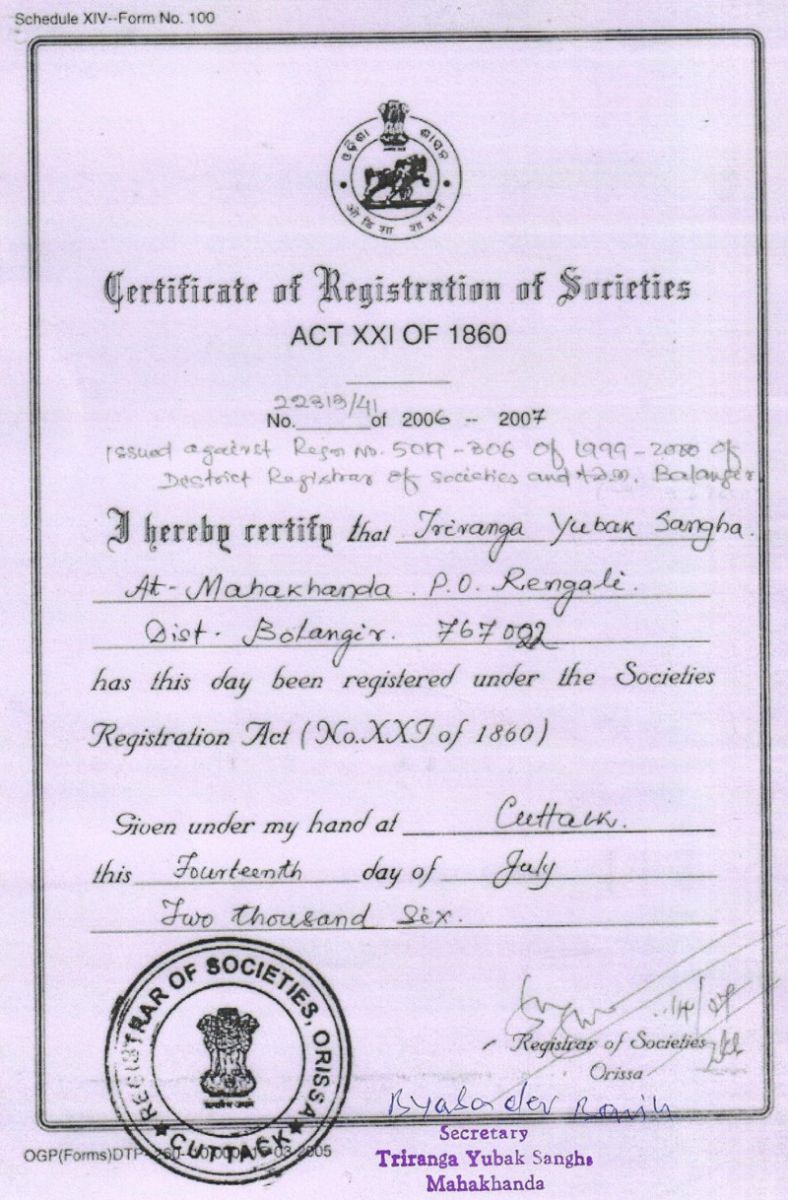 Schedule XIV--Form No. 100
ଓଡ଼ିଶା ଶାସନ
ओडिशा शासन
Certificate of Registration of Societies
ACT XXI OF 1860
22313/41
No. of 2006 -- 2007
Issued against Regn No. 5019-306 of 1999-2000 of
District Registrar of Societies and A.D.M. Balangir
I hereby certify that Triranga Yubak Sangha.
At- Mahakhanda. P.O. Rengali.
Dist- Bolangir. 767002
has this day been registered under the Societies
Registration Act (No.XXI of 1860)
Given under my hand at Cuttack.
this Fourteenth day of July
Two thousand Six.
REGISTRAR OF SOCIETIES, ORISSA
CUTTACK
Registrar of Societies
Orissa
Byasadev
Secretary
Triranga Yubak Sangha
Mahakhanda
OGP(Forms)DTP